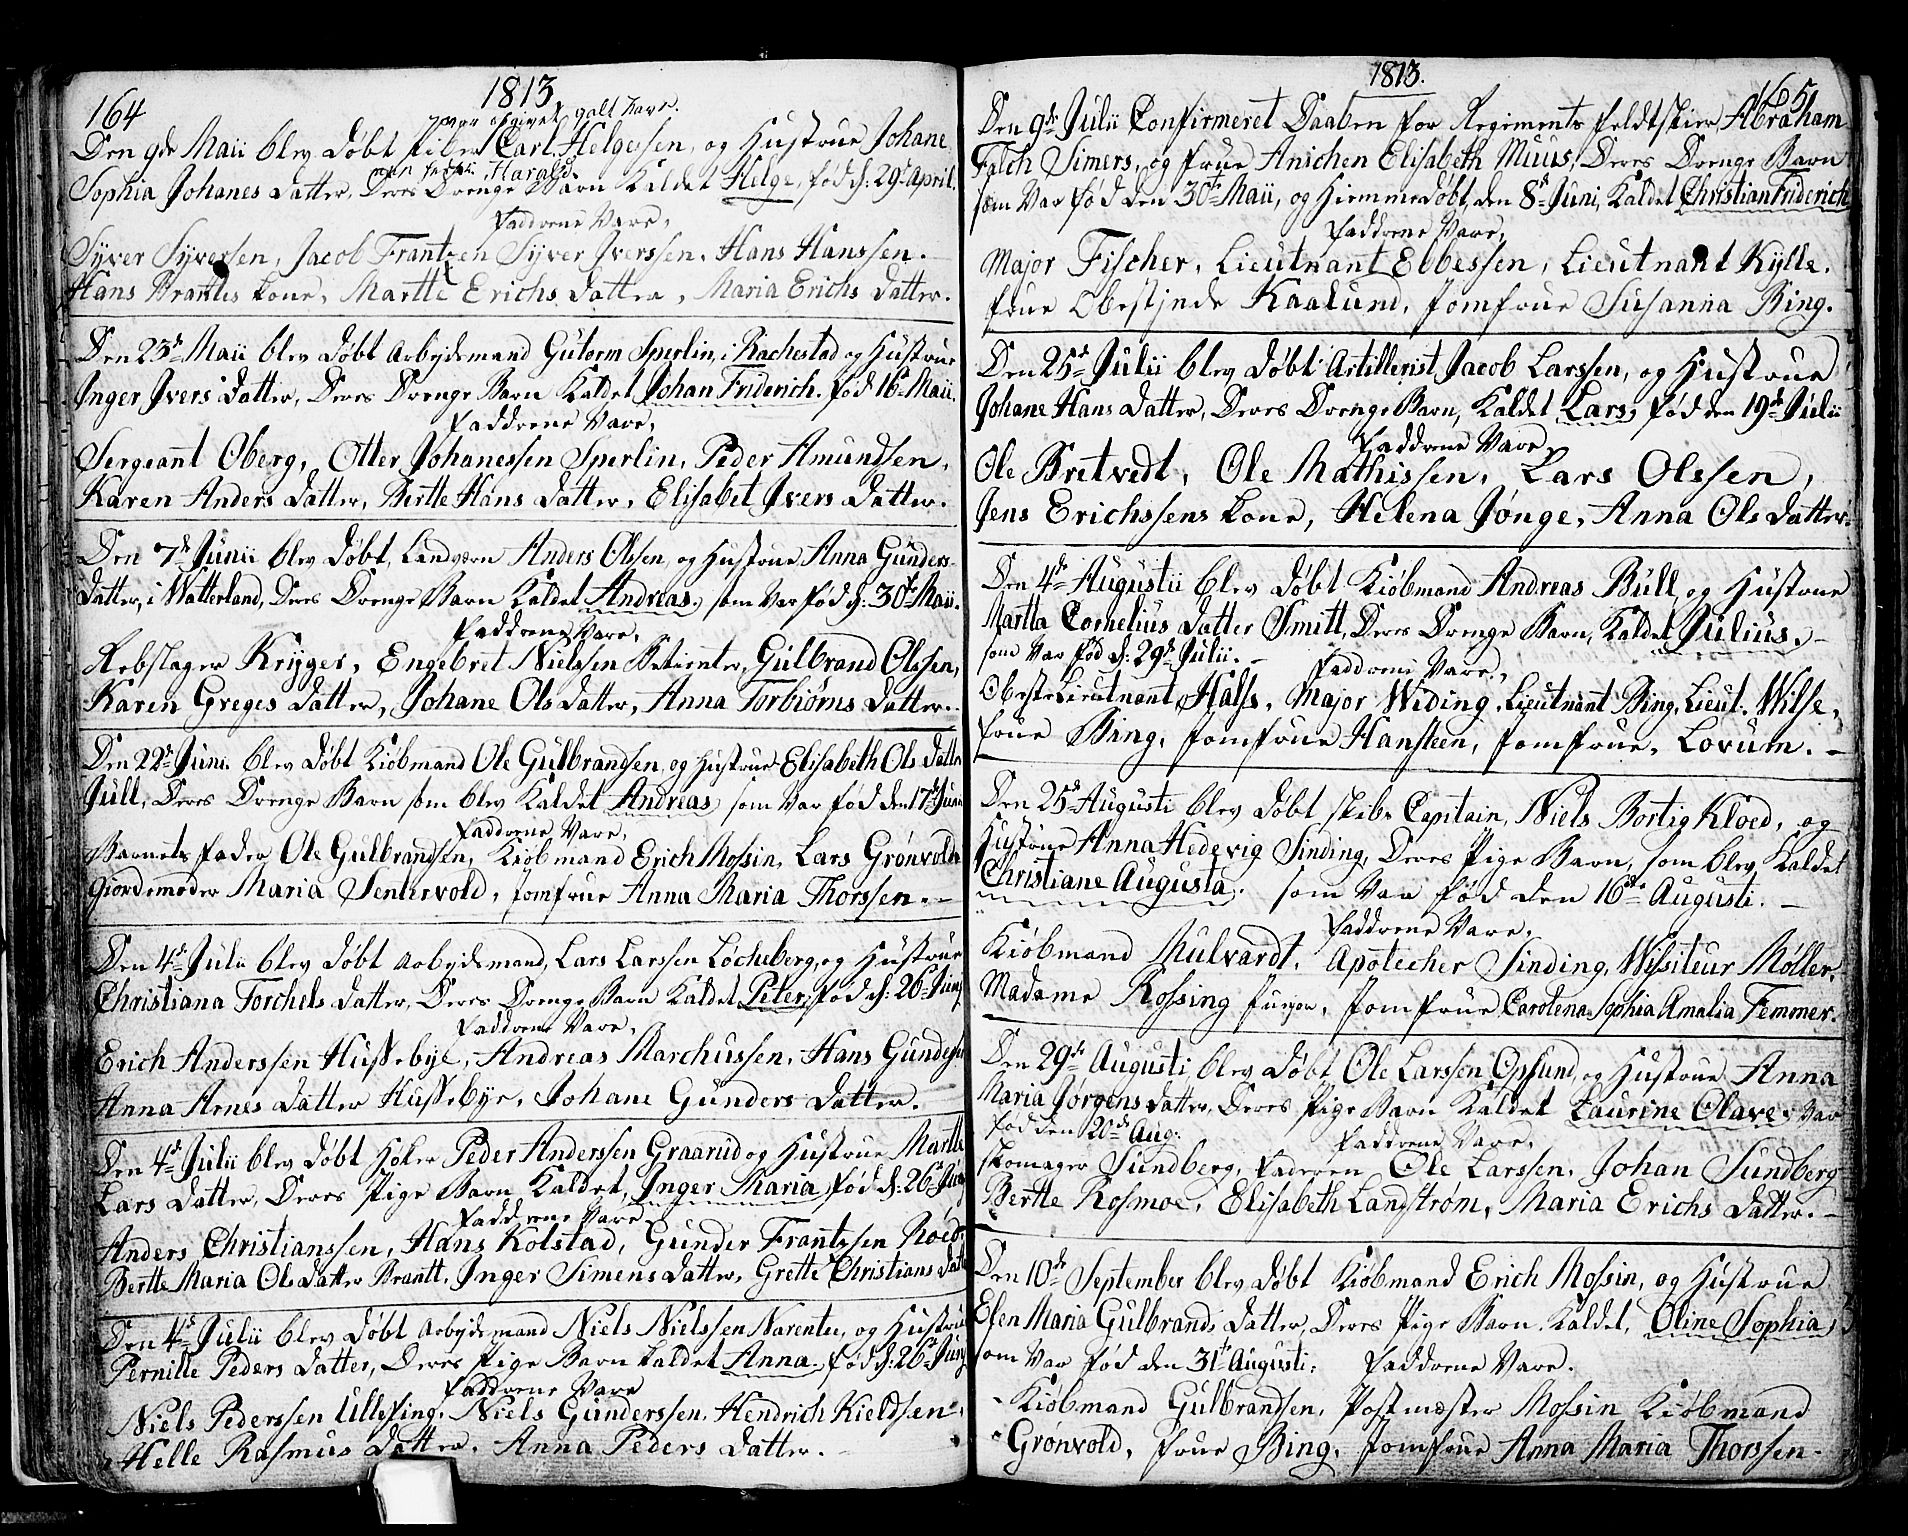 164
1813
var opgivet galt Navn.
Den 9de Maii blev døbt Carl Helgessen, og Hustrue Johane
man sagde Harald
Sophia Johanes Datter, Deres Drenge Barn Kaldet Helge, fød d: 29de April.
Faddrene Vare,
Syver Syverssen, Jacob Frantzen Syver Iverssen, Hans Hanssen.
Hans Brantes Kone, Martte Erichs Datter, Maria Erichs Datter.
Den 23de Maii blev døbt Arbejdsmand Gutorm Sperlin, i Rachestad og Hustrue
Inger Ivers Datter, Deres Drenge Barn Kaldet Johan Friderich. fød 16de Maii.
Faddrene Vare,
Sergeant Oberg, Otter Johanessen Sperlin, Peder Amundsen,
Karen Anders Datter, Birtte Hans Datter, Elisabet Ivers Datter.
Den 7de Junii blev døbt, Landværn Anders Olssen, og Hustrue Anna Gunders
Datter, i Watterland, Deres Drenge Barn Kaldet Andreas. som Var fød d: 30te Maii.
Faddrene Vare,
Rebslager Kryger, Engebret Nielssen Betienter, Gulbrand Olssen,
Karen Greges Datter, Johane Ols Datter, Anna Torbiørns Datter.
Den 22de Juni blev døbt Kiøbmand Ole Gulbrandsen, og Hustrue Elisabeth Ols Datter
Jull, Deres Drenge Barn som blev Kaldet Andreas, som Var fød den 17de Juni
Faddrene Vare,
Barnets Fader Ole Gulbrandsen, Kiøbmand Erich Mossin, Lars Grønvold
Giordemoder Maria Senhrvold, Jomfrue Anna Maria Thorssen.
Den 4de Julii blev døbt Arbejdsmand, Lars Larssen Løcheberg, og Hustrue
Christiana Torchels Datter, Deres Drenge Barn Kaldet Peter, fød d: 26de Juni
Faddrene Vare,
Erich Anderssen Hussebye, Andreas Marchussen, Hans Gunders
Anna Arnes Datter Hussebye, Johane Gunders Datter.
Den 4de Julii blev døbt Høker Peder Anderssen Graarud og Hustrue Martte
Lars Datter, Deres Pige Barn Kaldet, Inger Maria, fød d: 26de Juni
Faddrene Vare
Anders Christianssen, Hans Kolstad, Gunder Frantzsen Røed,
Bertte Maria Ols Datter Brantt, Inger Simens Datter, Grette Christians Datt
Den 4de Julii blev døbt Arbejdsmand Niels Nielssen Narenter, og Hustrue
Pernille Peders Datter, Deres Pige Barn kaldet Anna. fød d: 26de Juni
Faddrene Vare
Niels Pederssen Ullesing, Niels Gunderssen, Hendrich Kieldsen,
Helle Rasmus Datter, Anna Peders Datter.
1813.
165
Den 9de Julii Confirmeret Daaben for Regiments Feldtskier Abraham
Falch Simers, og Frue Anichen Elisabeth Muus, Deres Drenge Barn
som Var fød den 30te Maii, og Hiemmedøbt, den 8de Juni, Kaldet Christian Friderich
Faddrene Vare,
Major Fischer, Lieutnant Ebbessen, Lieutnant Kylle,
Frue Obestinde Kaalund, Jomfrue Susanna Bing.
Den 25de Julii blev døbt Artillerist Jacob Larssen, og Hustrue
Johane Hans Datter, Deres Drenge Barn, Kaldet Lars, fød den 19de Julii
Faddrene Vare,
Ole Bretvedt, Ole Mathissen, Lars Olssen,
Jens Erichssens Kone, Helena Jønge, Anna Ols Datter.
Den 4de Augustii blev døbt Kiøbmand Andreas Bull, og Hustrue
Martta Cornelius Datter Smitt, Deres Drenge Barn, Kaldet Julius.
som Var fød d: 29de Julii.
Faddrene Vare,
Obestelieutnant Halss, Major Widing, Lieutnant Bing, Lieut. Wilse,
Frue Bing, Jomfrue Hansteen, Jomfrue Lorum.
Den 25de Augusti blev døbt Skibs Capitain, Niels Bortig Kloed, og
Hustrue Anna Hedevig Sinding, Deres Pige Barn, som blev Kaldet
Christiane Augusta. som Var fød den 16de Augusti.
Faddrene Vare,
Kiøbmand Mulvardt, Apotecher Sinding, Wissiteur Møller,
Madame Rossing Junior, Jomfrue Carolena Sophia Amalia Femmer.
Den 29de Augusti blev døbt Ole Larssen Opsund, og Hustrue Anna
Maria Jørgens Datter, Deres Pige Barn Kaldet Laurine Olave, Var
fød den 20de Aug:
Faddrene Vare,
Skomager Sundberg, Faderen Ole Larssen, Johan Sundberg
Bertte Rosmoe, Elisabeth Langstrøm, Maria Erichs Datter.
Den 10de September blev døbt Kiøbmand Erich Mossin, og Hustrue
Elen Maria Gulbrands Datter, Deres Pige Barn Kaldet, Oline Sophia,
som Var fød den 31te Augusti, Faddrene Vare.
Kiøbmand Gulbrandsen, Postmæster Mossin Kiøbmand
Grønvold, Frue Bing, Jomfrue Anna Maria Thorssen.